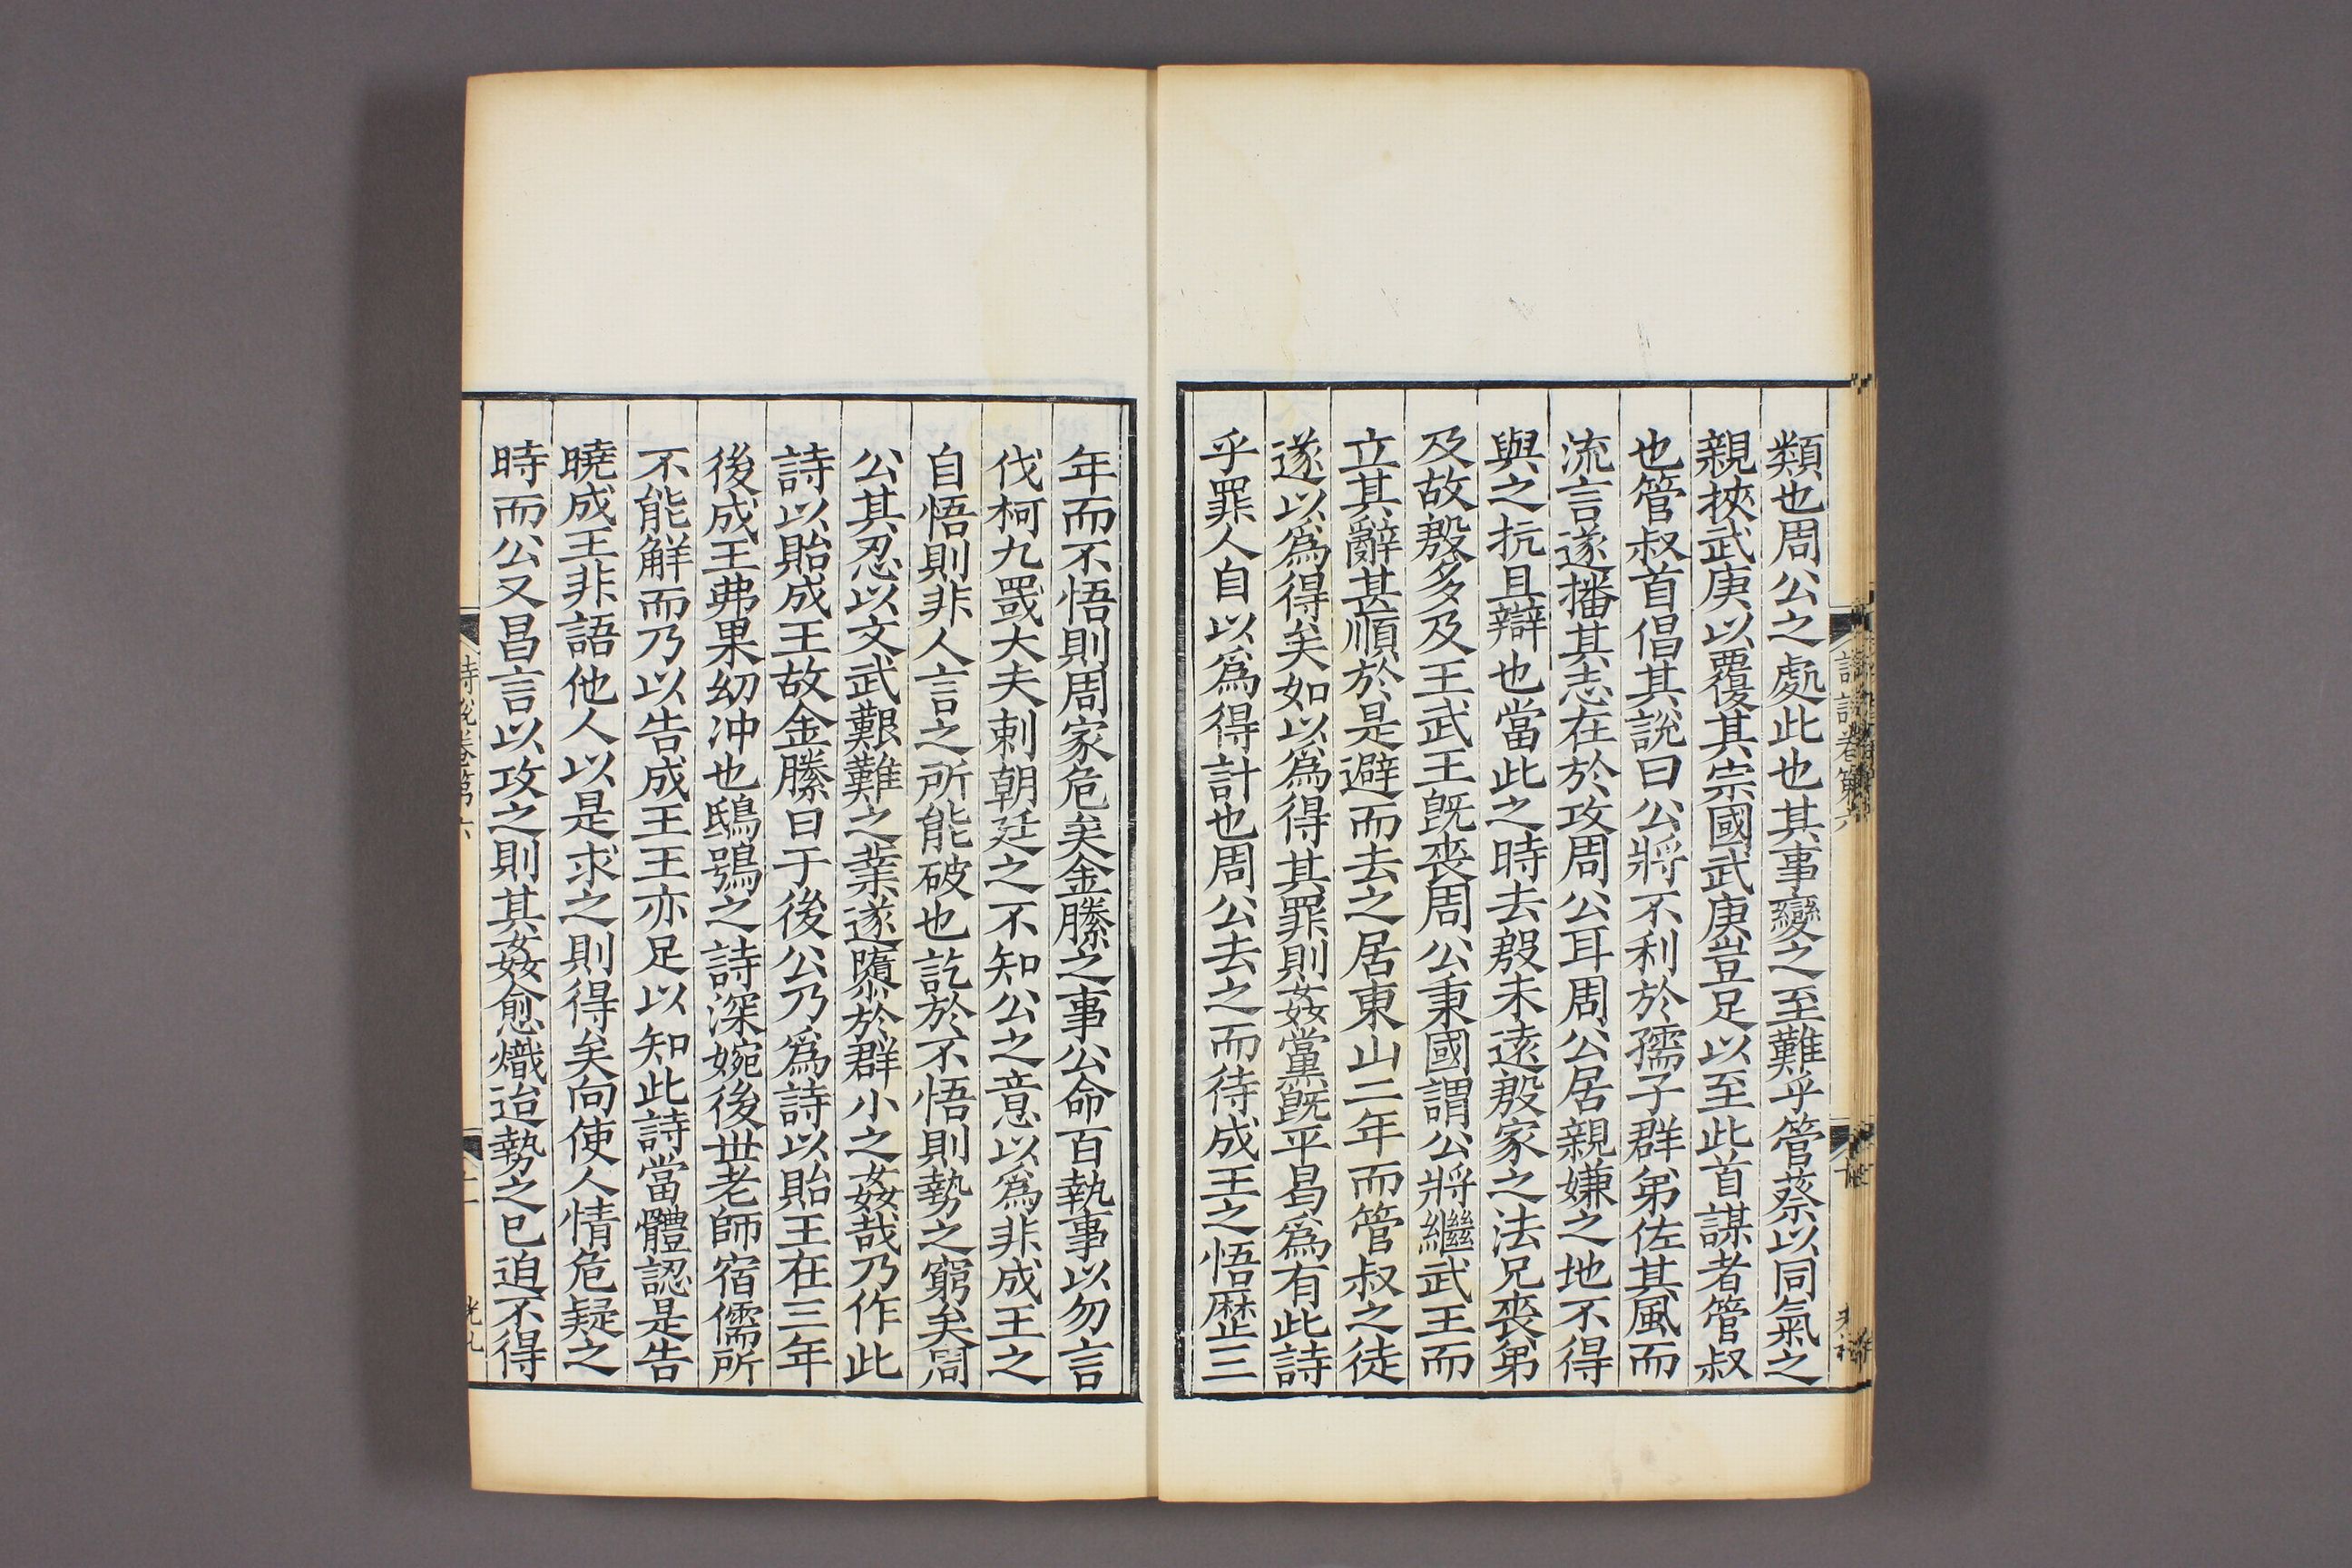 類也周公之處此也其事變之至難乎管蔡以同氣之
親挾武庚以覆其宗國武庚豈足以至此首謀者管叔
也管叔首倡其説曰公將不利於孺子群弟佐其風而
流言遂播其志在於攻周公耳周公居親嫌之地不得
與之抗且辯也當此之時去殷未遠殷家之法兄喪弟
及故殷多及王武王旣喪周公秉國謂公將繼武王而
立其辭甚順於是避而去之居東山二年而管叔之徒
遂以爲得矣如以爲得其罪則姦黨旣平曷爲有此詩
乎罪人自以爲得計也周公去之而待成王之悟歷三
年而不悟則周家危矣金縢之事公命百執事以勿言
伐柯九罭大夫刺朝廷之不知公之意以爲非成王之
自悟則非人言之所能破也訖於不悟則勢之窮矣周
公其忍以文武艱難之業遂隳於群小之姦哉乃作此
詩以貽成王故金縢曰于後公乃爲詩以貽王在三年
後成王弗果幼冲也鴟鴞之詩深婉後世老師宿儒所
不能解而乃以告成王王亦足以知此詩當體認是告
曉成王非語他人以是求之則得矣向使人情危疑之
時而公又昌言以攻之則其姦愈熾迨勢之已迫不得
詩說卷第六